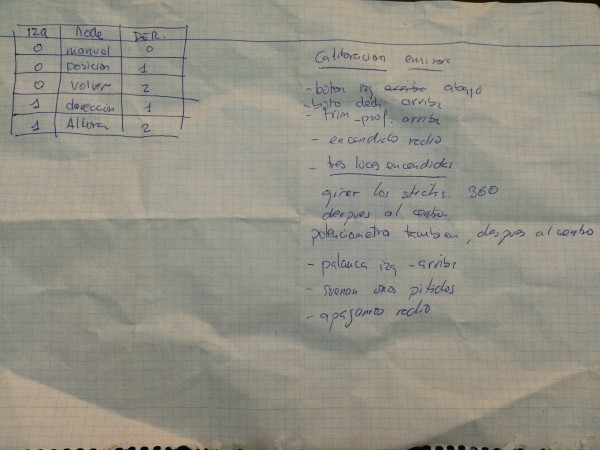 IZQ Mode DER.
0 manual 0
0 posicion 1
0 volver 2
1 dirección 1
1 Altura 2
Calibracion emisora
- boton izq arriba abajo
- boto dech arriba
- trim - prof. arriba
- encendido radio
- tres luces encendidas
girar los sticks. 360
despues al centro.
potenciometro tambien, despues al centro
- palanca izq - arriba
- suenan unos pitidos
- apagamos radio